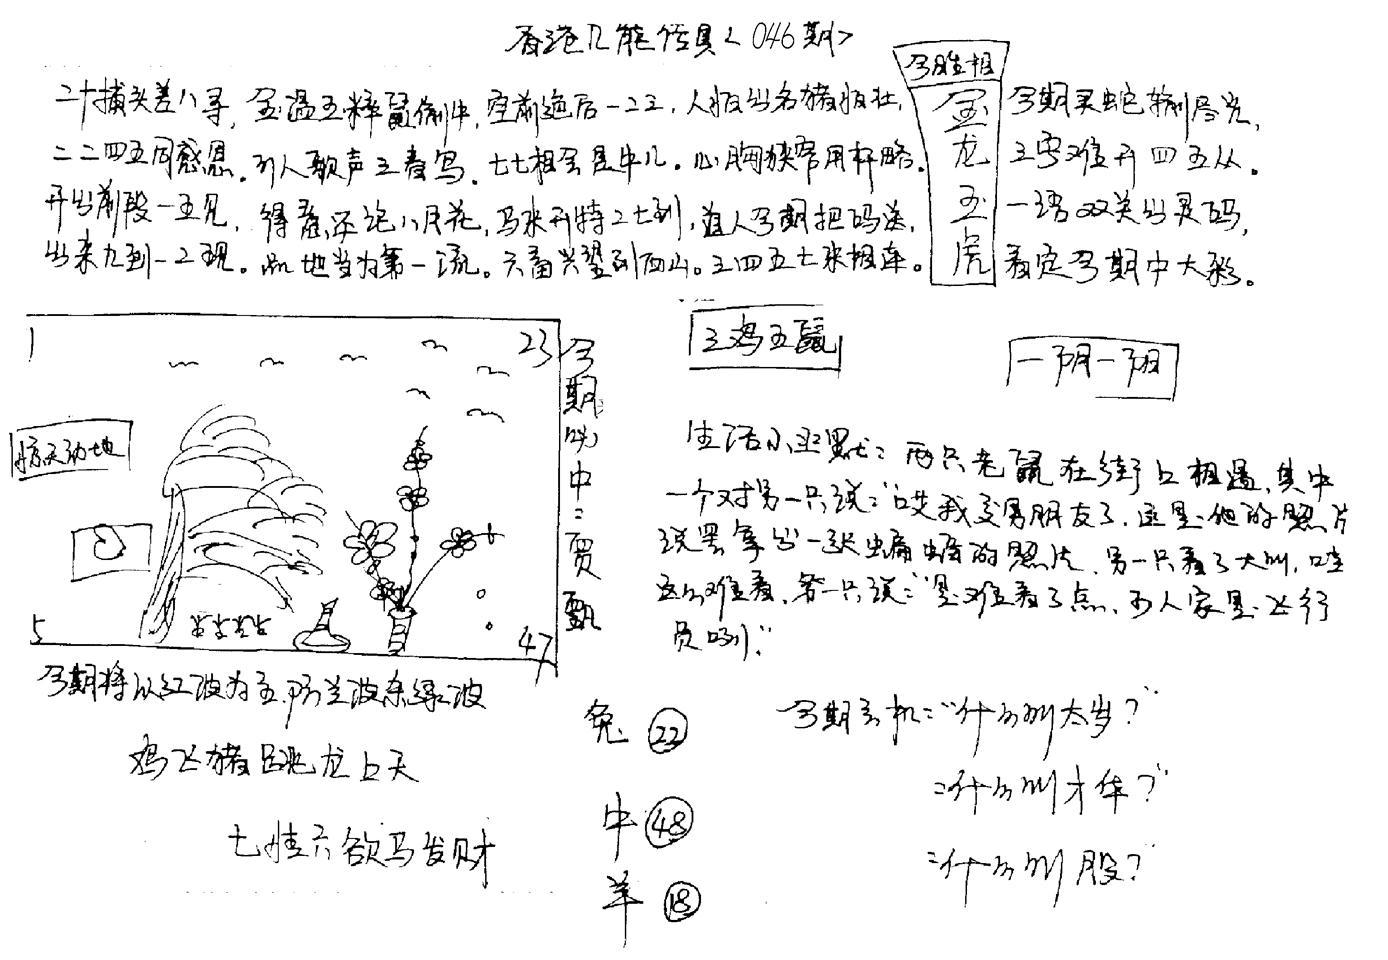 香港几能传真〈046期〉
今期生相
金龙玉虎
二十捕头差八寻, 金温五粹鼠偷中, 空前绝后一二三, 人怕出名猪怕壮,
二二四五同感恩。引人歌声立春鸟。七七相会是中儿。心胸狭窄用杆略。
开出前段一五见, 得意还论八月花, 马来开特二七到, 道人今期把码送,
出来九到一二现。此地当为第一流。六畜兴望到西山。三四五七来相连。
今期灵蛇输春光,
三字难开四五从。
一语双关出灵码,
看定今期中大彩。
1
23
惊天动地
5
47
今期必中:贾甄
三鸡五鼠
一阴一阳
生活小幽默:两只老鼠在街上相遇,其中
一个对另一只说:"哎我交男朋友了,这是他的照片
说罢拿出一张蝙蝠的照片,另一只看了大叫,哇
这么难看,答一只说:"是难看了点,可人家是飞行
员咧!"
今期将以红波为主,防兰波杀绿波
鸡飞猪跳龙上天
七情六欲马发财
兔 22
牛 48
羊 18
今期玄机:"什么叫太岁?"
:"什么叫才华?"
:"什么叫股?"